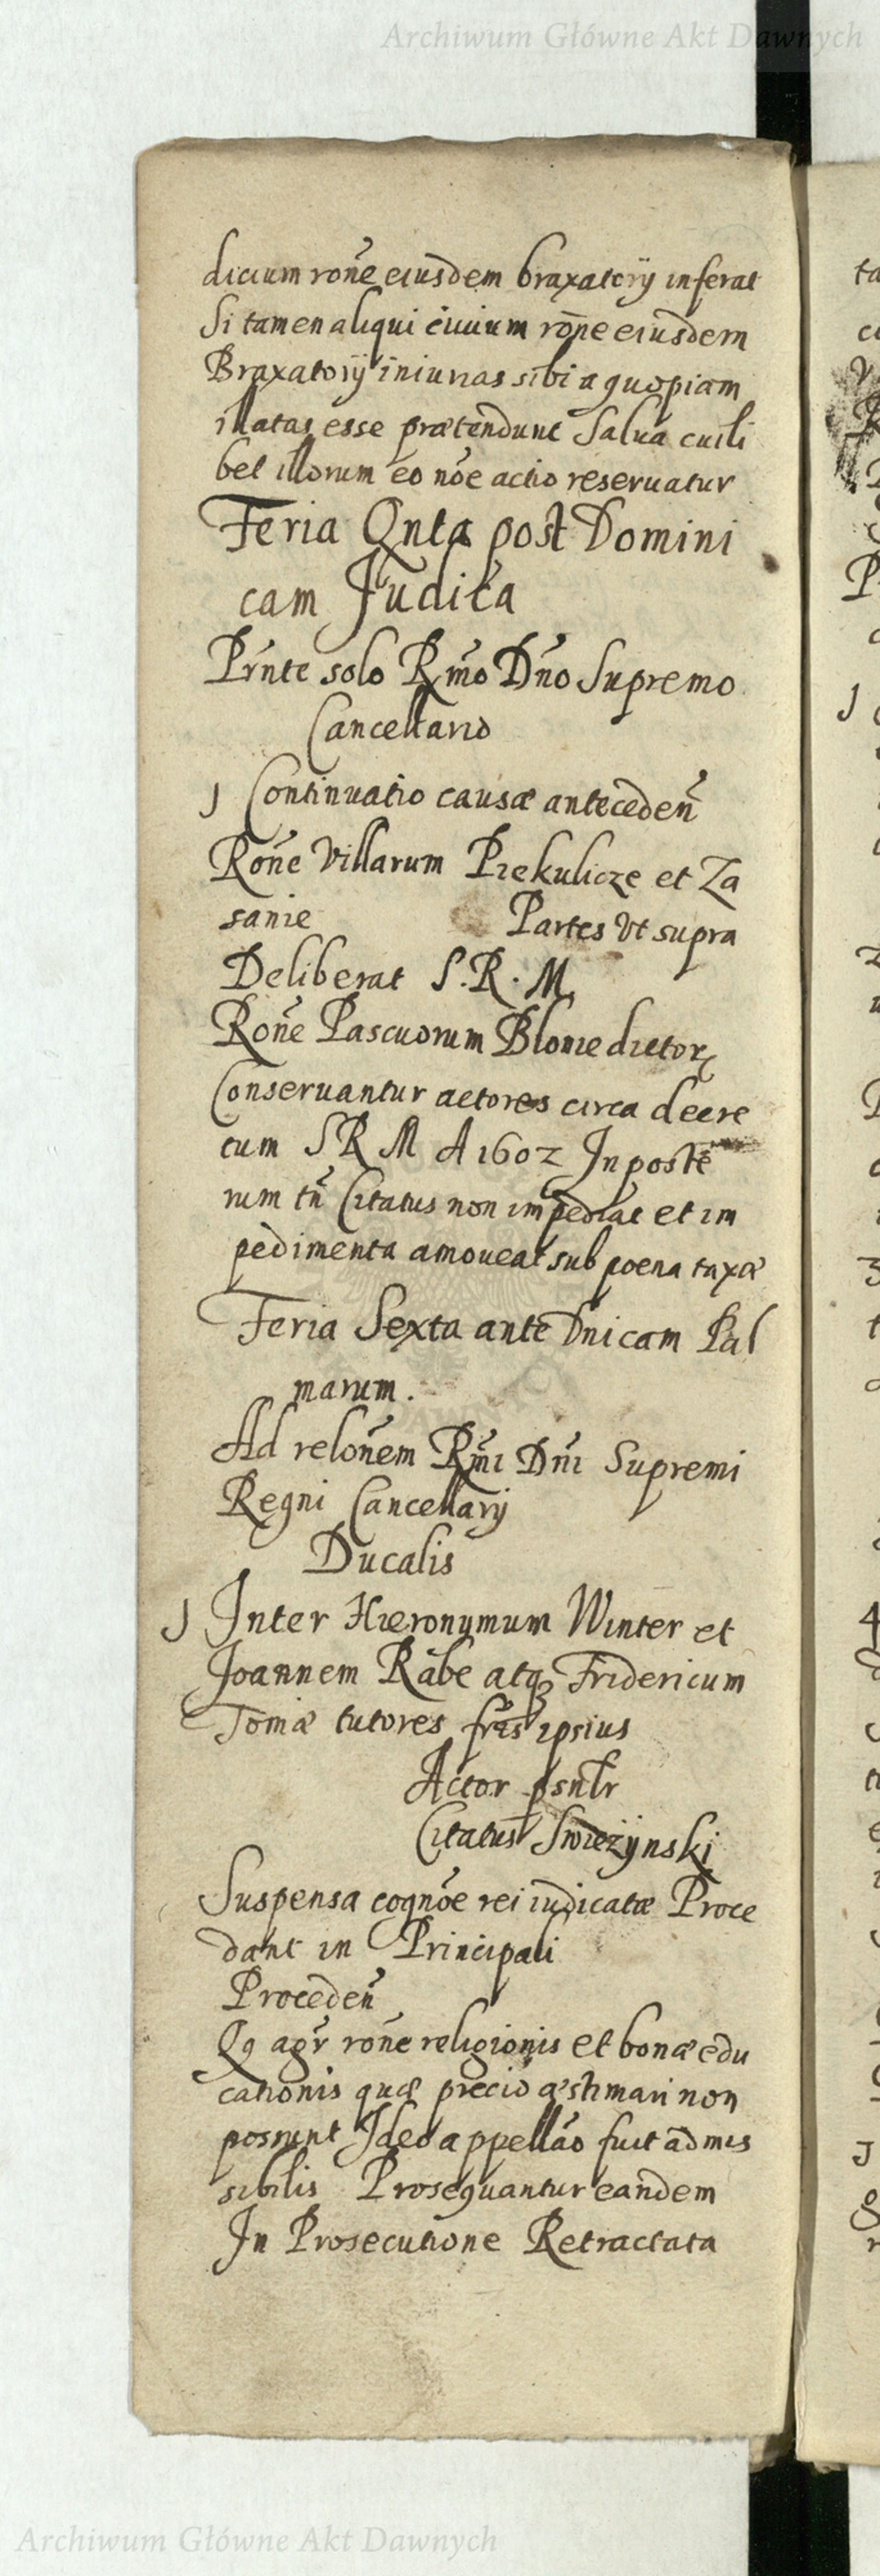 Archiwum Główne Akt Dawnych
dicium rone eiusdem braxatorij inferat
Si tamen aliqui ciuium rone eiusdem
Braxatorij iniurias sibi a quopiam
illatas esse prætendunt Salua cuili
bet illorum eo noe actio reseruatur
Feria Qnta post Domini
cam Judica
Prnte solo Rmo Dno Supremo
Cancellario
J Continuatio causæ anteceden
Rone Villarum Piekulicze et Za
sanie Partes Vt supra
Deliberat S. R. M.
Rone Pascuorum Blonie dictor
Conseruantur actores circa decre
tum S R M A 1602 In poste
rum tn Citatus non impediat et im
pedimenta amoueat sub poena taxæ
Feria Sexta ante Dnicam Pal
marum.
Ad relonem Rmi Dni Supremi
Regni Cancellarij
Ducalis
J Inter Hieronymum Winter et
Joannem Rabe atq Fridericum
Tomæ tutores fris ipsius
Actor psnlr
Citatus Swiezynski
Suspensa cognoe rei iudicatæ Proce
dant in Principali
Proceden
Qq agr rone religionis et bonæ edu
cationis quæ precio æstimari non
possunt Ideo appellao fuit admis
sibilis Prosequantur eandem
In Prosecutione Retractata
Archiwum Główne Akt Dawnych